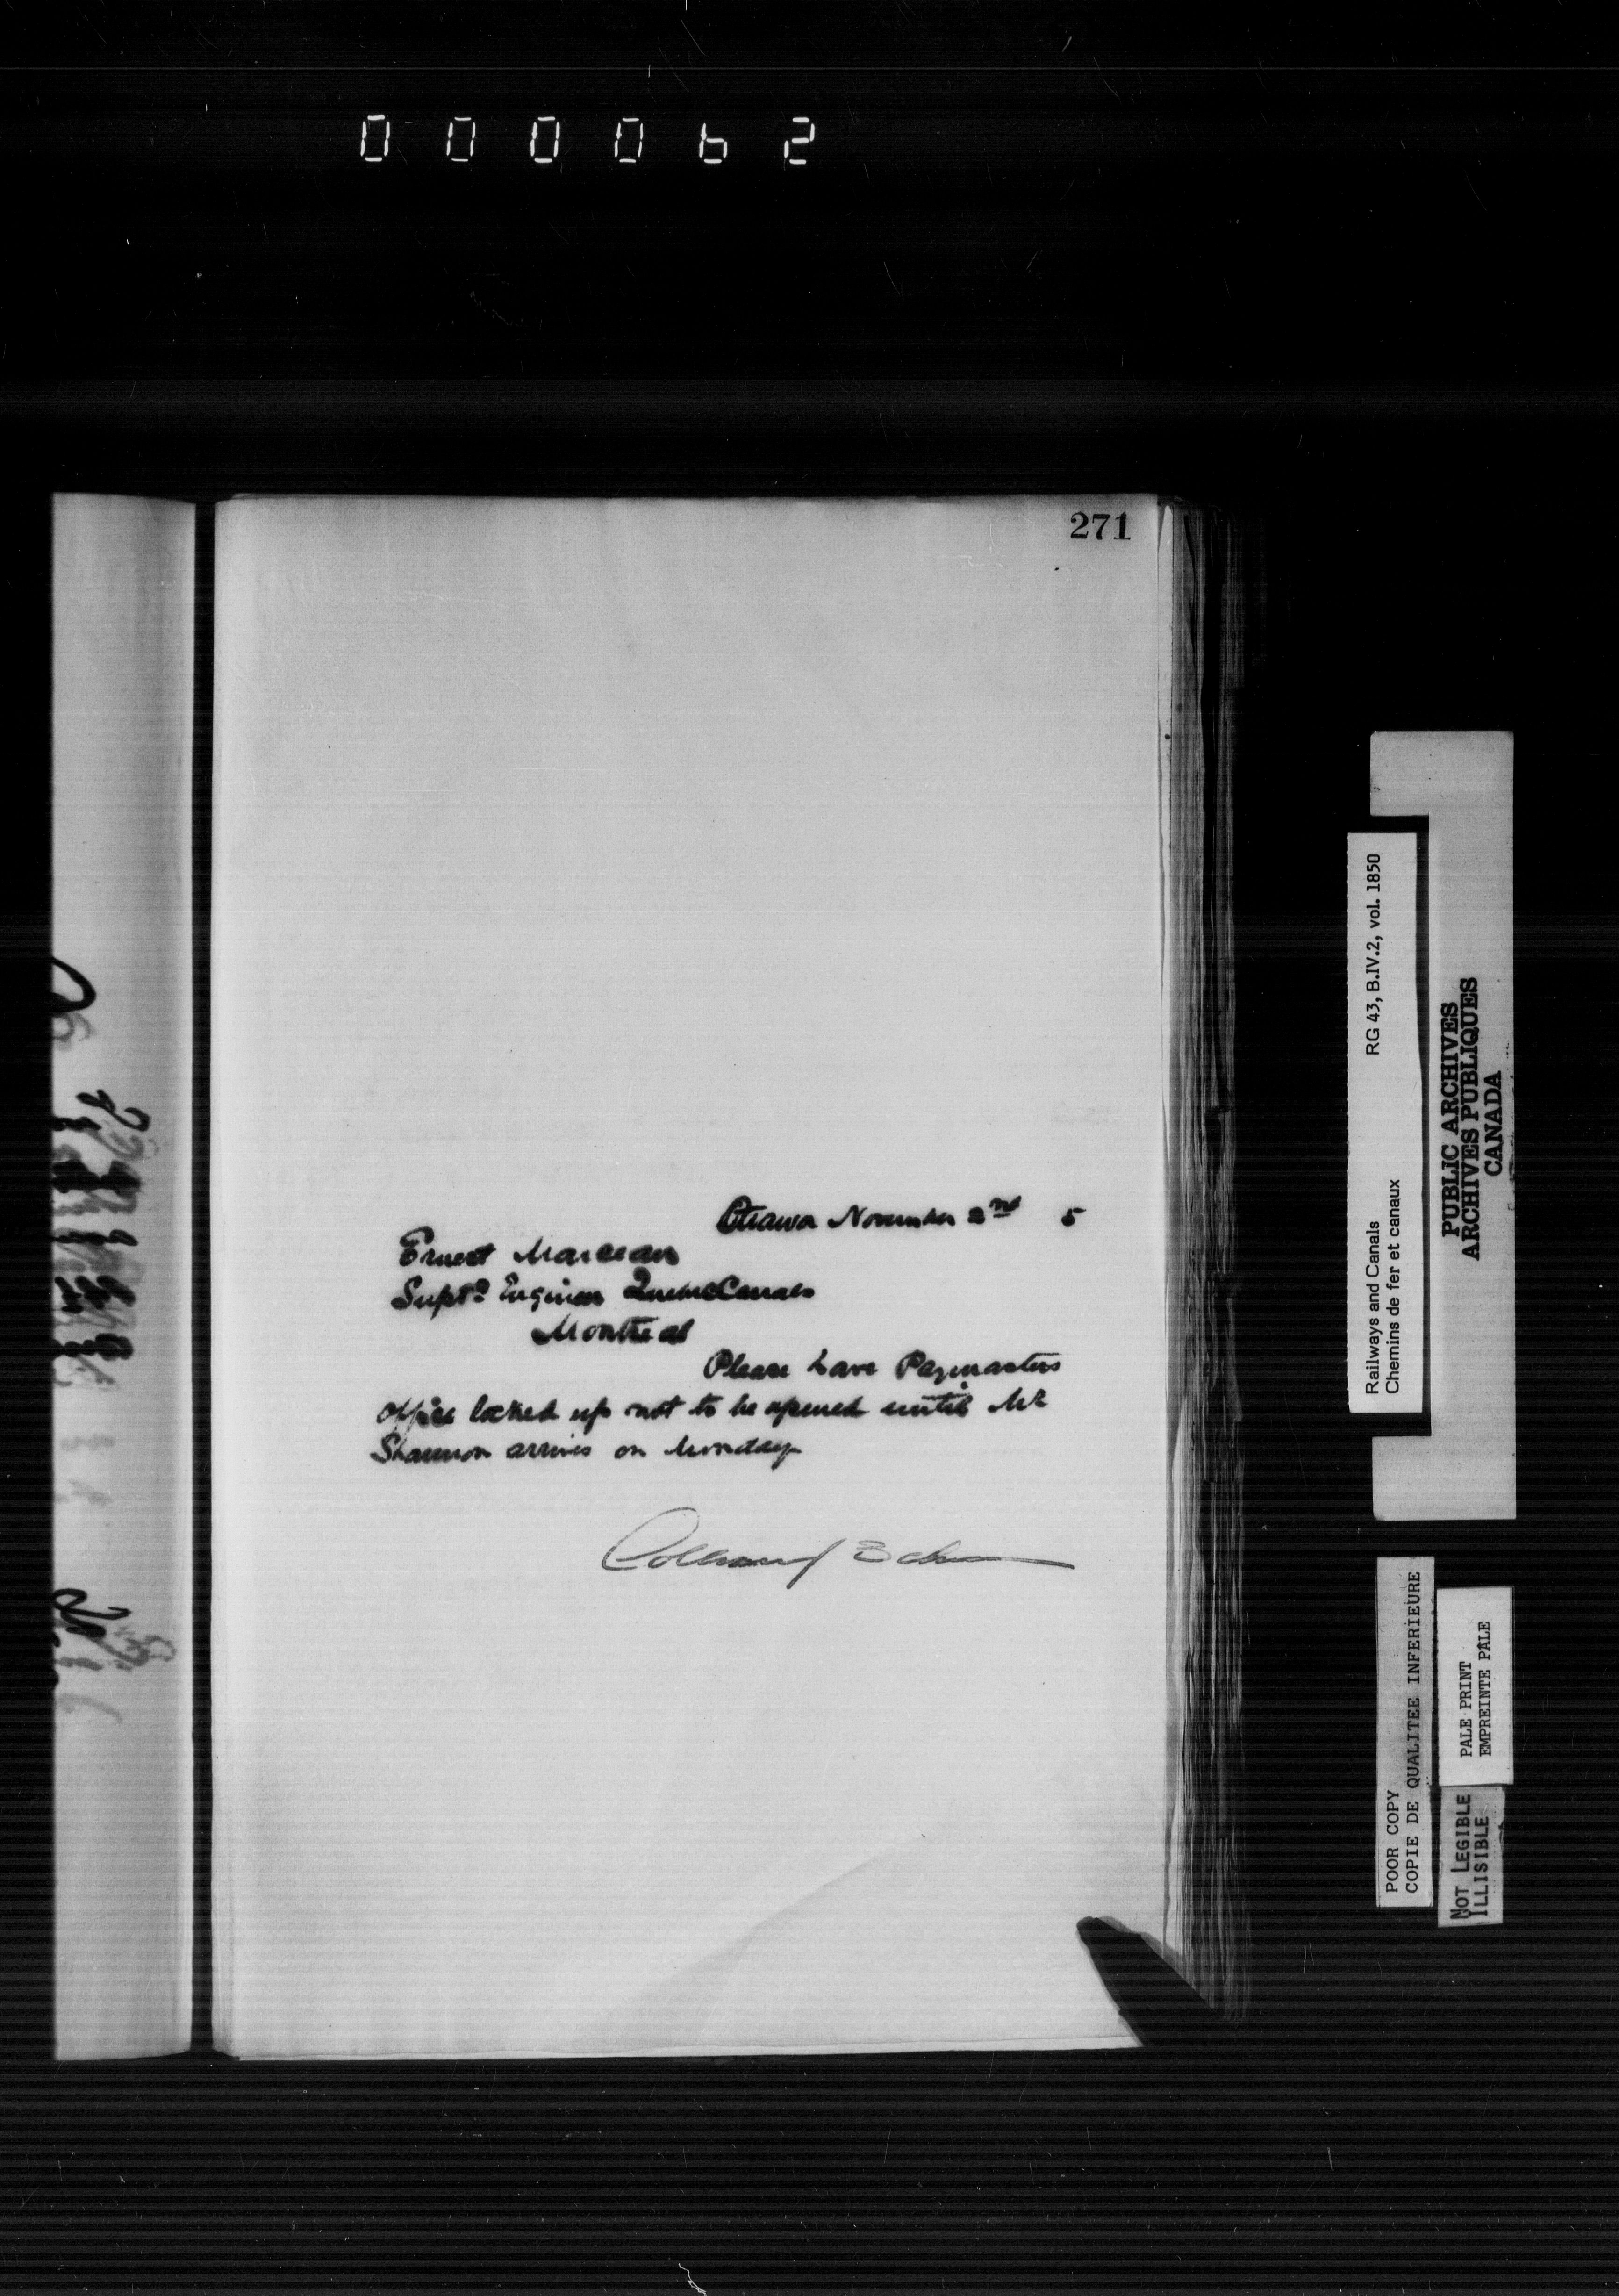 000062
271
Ottawa November 2nd 5
Ernest Marceau
Suptg Engineer Quebec Canals
Montreal
Please have Paymasters
Office locked up not to be opened until Mr
Shannon arrives on Monday
Collingwood Schreiber
Railways and Canals RG 43, B.IV.2, vol. 1850
Chemins de fer et canaux
PUBLIC ARCHIVES
ARCHIVES PUBLIQUES
CANADA
POOR COPY
COPIE DE QUALITEE INFERIEURE
PALE PRINT
EMPREINTE PÂLE
NOT LEGIBLE
ILLISIBLE